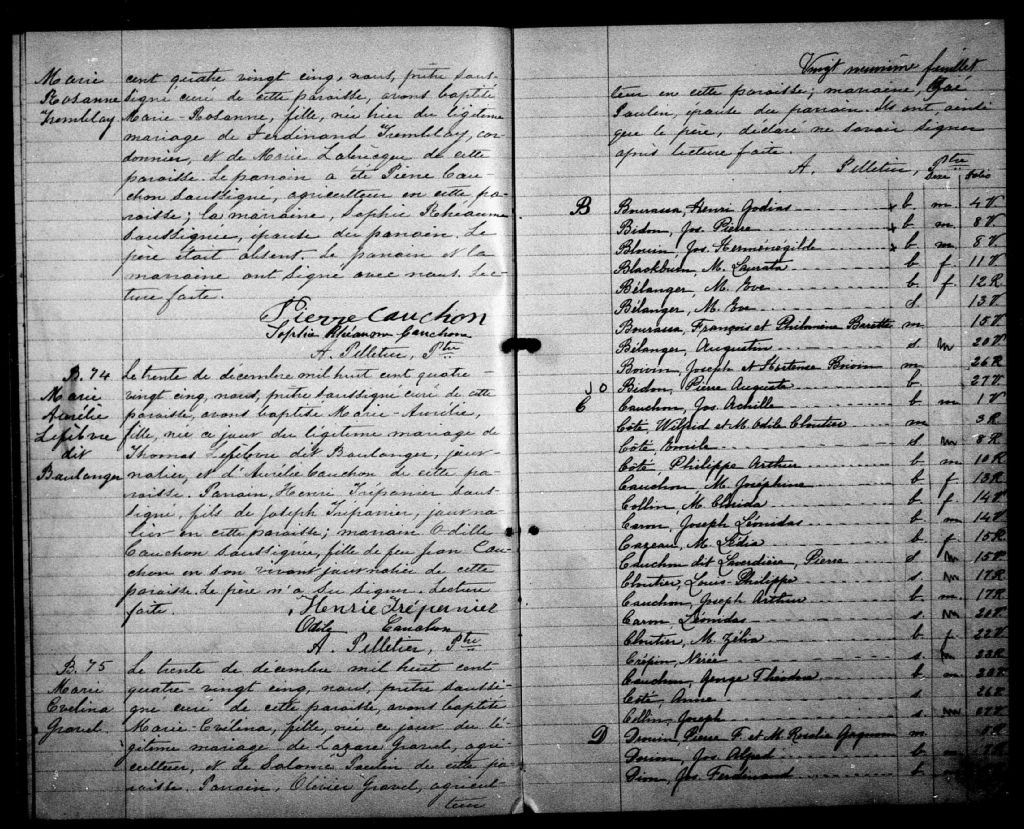 Marie
Rosanne
Tremblay
cent quatre vingt cinq, nous, prêtre sous-
signé curé de cette paroisse, avons baptisé
Marie-Rosanne, fille, née hier du légitime
mariage de Ferdinand Tremblay, cor-
donnier, et de Marie Labrecque de cette
paroisse. Le parrain a été Pierre Cau-
chon soussigné, agriculteur en cette pa-
roisse; la marraine, Sophie Rhéaume
soussignée, épouse du parrain. Le
père était absent. Le parrain et la
marraine ont signé avec nous. Lec-
ture faite.
Pierre Cauchon
Sophie Rhéaom Cauchon
A. Pelletier, Ptre
B. 74
Marie
Aurélie
Lefebvre
dit
Boulanger
Le trente de décembre mil huit cent quatre-
vingt cinq, nous, prêtre soussigné curé de cette
paroisse, avons baptisé Marie-Aurélie,
fille, née ce jour du légitime mariage de
Thomas Lefebvre dit Boulanger, jour-
nalier, et d'Aurélie Cauchon de cette pa-
roisse. Parrain, Henri Trépanier sous-
signé, fils de Joseph Trépanier, journa-
lier en cette paroisse; marraine Odille
Cauchon soussignée, fille de feu Jean Cau-
chon en son vivant journalier de cette
paroisse. Le père n'a su signer. Lecture
faite.
Henrie Trépernier
Odile Cauchon
A. Pelletier, Ptre
B. 75
Marie
Evelina
Gravel
Le trente de décembre mil huit cent
quatre-vingt cinq, nous, prêtre soussi-
gné curé de cette paroisse, avons baptisé
Marie-Evélina, fille, née ce jour du lé-
gitime mariage de Lazare Gravel, agri-
culteur, et de Salomé Poulin de cette pa-
roisse. Parrain, Olivier Gravel, agricul
teur
Vingt neuvième feuillet
teur en cette paroisse; marraine,
Poulin, épouse du parrain. Ils ont, ainsi
que le père, déclaré ne savoir signer
après lecture faite.
A. Pelletier, Ptre
Sexe Folio
B Bourassa, Henri Godias x b m. 4 V
Bidon, Jos. Pierre b m. 8 V.
Blouin, Jos. Herménégilde x b m. 8 V.
Blackburn, M. Laurata b f. 11 V
Bélanger, M. Eve b f. 12 R
Bélanger, M. Eve s 13 V.
Bourassa, François et Philomène Barette m 15 V.
Bélanger, Augustin s m 20 V.
Boivin, Joseph et Hortense Boivin m 26 R
10 Bidon, Pierre Auguste b 27 V.
C Cauchon, Jos. Achille b m 1 V
Côté Wilfrid et M. Odile Cloutier m 3 R
Côté Emile s m 8 R
Côté Philippe Arthur b m 10 R
Cauchon M. Joséphine b f 13 R
Collin M. Elmida b f 14 V
Caron, Joseph Léonidas b m 14 V.
Cazeau, M. Lédia b f 15 R
Cauchon dit Laverdière, Pierre s m 15 V.
Cloutier, Louis-Philippe s m 17 R
Cauchon, Joseph Arthur b m. 17 R
Caron, Léonidas s m 20 V
Cloutier, M. Zélia b f 22 V
Crépin, Nérée s 23 R
Cauchon, George Théodore b m
Côté, Anna s 26 R
Collin, Joseph s m 27 V.
D Drouin, Pierre F. et M. Rosalie Gagnon m
Dorion, Jos. Alfred b m
Dion, Jos. Ferdinand b m